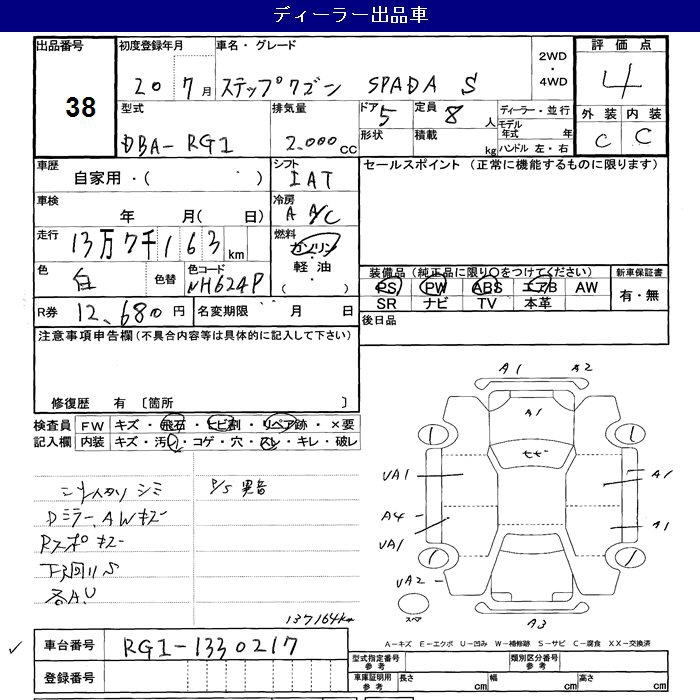 ディーラー出品車
出品番号 38
初度登録年月 20 7月
車名・グレード ステップワゴン SPADA S
2WD・4WD
評価点 4
型式 DBA-RG1
排気量 2.000cc
ドア 5
形状
定員 8人
積載 kg
ディーラー・並行
モデル年式 年
ハンドル 左・右
外装 C
内装 C
車歴 自家用・( )
シフト IAT
セールスポイント (正常に機能するものに限ります)
車検 年 月( 日)
冷房 A A/C
走行 13万7千163km
燃料 ガソリン・軽油・( )
色 白
色替
色コード NH624P
装備品(純正品に限り○をつけてください)
PS PW ABS エアB AW
SR ナビ TV 本革
新車保証書 有・無
R券 12,680円
名変期限 月 日
後日品
注意事項申告欄(不具合内容等は具体的に記入して下さい)
修復歴 有 〔箇所 〕
検査員記入欄
FW キズ・飛石・ヒビ割・リペア跡・×要
内装 キズ・汚レ・コゲ・穴・スレ・キレ・破レ
シミ
P/S 異音
Dミラー、AWキズ
Rスポ キズ
下廻りS
各A.U
137164km
A1 A2
A1
UA1
A1
A4
A1
UA1
UA2
スペア
A3
A-キズ E-エクボ U-凹み W-補修跡 S-サビ C-腐食 XX-交換済
車台番号 RG1-1330217
登録番号
型式指定番号 参考
類別区分番号 参考
車庫証明用 参考 長さ cm 幅 cm 高さ cm